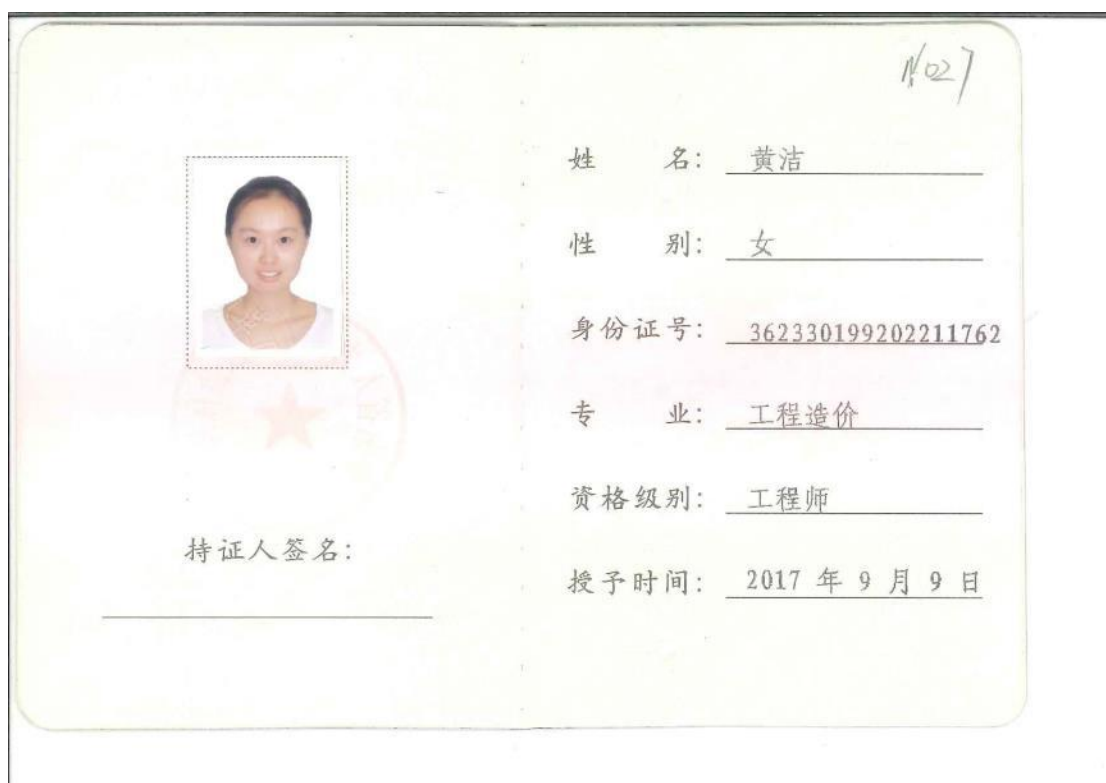 N027
姓 名: 黄洁
性 别: 女
身份证号: 362330199202211762
专 业: 工程造价
资格级别: 工程师
授予时间: 2017 年 9 月 9 日
持证人签名: